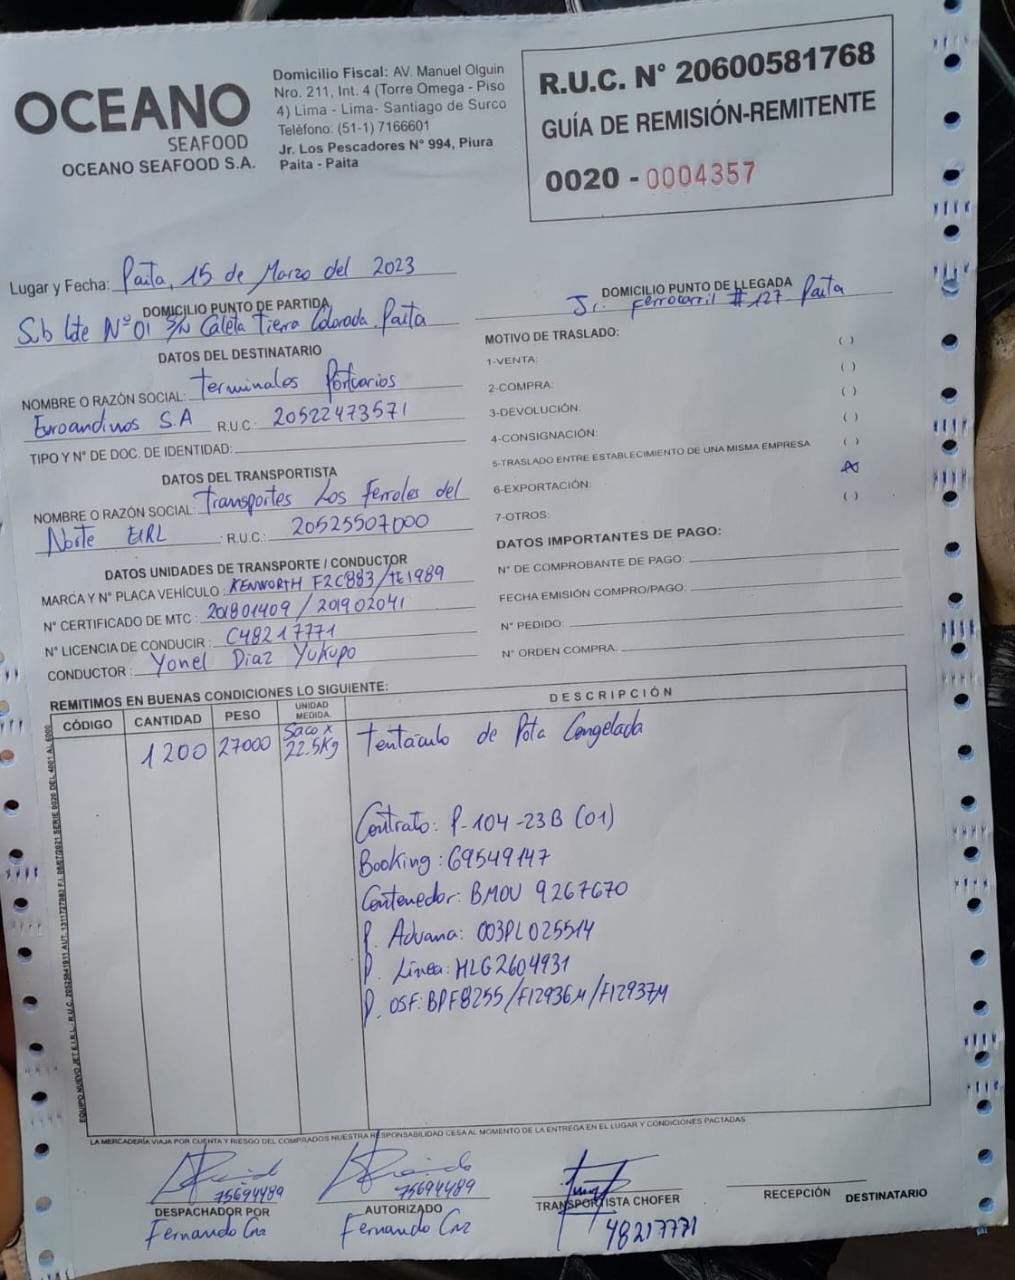 OCEANO
SEAFOOD
OCEANO SEAFOOD S.A.
Domicilio Fiscal: AV. Manuel Olguin
Nro. 211, Int. 4 (Torre Omega - Piso
4) Lima - Lima- Santiago de Surco
Teléfono: (51-1) 7166601
Jr. Los Pescadores N° 994, Piura
Paita - Paita
R.U.C. N° 20600581768
GUÍA DE REMISIÓN-REMITENTE
0020 - 0004357
Lugar y Fecha: Paita, 15 de Marzo del 2023
DOMICILIO PUNTO DE PARTIDA
Sub lote N°01 S/N Caleta Tierra Colorada Paita
DOMICILIO PUNTO DE LLEGADA
Jr. Ferrocarril #127 Paita
DATOS DEL DESTINATARIO
NOMBRE O RAZÓN SOCIAL: Terminales Portuarios
Euroandinos S.A R.U.C.: 20522473571
TIPO Y N° DE DOC. DE IDENTIDAD:
DATOS DEL TRANSPORTISTA
NOMBRE O RAZÓN SOCIAL: Transportes Los Ferroles del
Norte EIRL R.U.C.: 20525507000
DATOS UNIDADES DE TRANSPORTE / CONDUCTOR
MARCA Y N° PLACA VEHÍCULO: KENWORTH F2C883/TE1989
N° CERTIFICADO DE MTC: 201801409 / 201902041
N° LICENCIA DE CONDUCIR: C48217771
CONDUCTOR: Yonel Diaz Yukupo
MOTIVO DE TRASLADO:
1-VENTA: ( )
2-COMPRA: ( )
3-DEVOLUCIÓN: ( )
4-CONSIGNACIÓN: ( )
5-TRASLADO ENTRE ESTABLECIMIENTO DE UNA MISMA EMPRESA ( )
6-EXPORTACIÓN: (X)
7-OTROS: ( )
DATOS IMPORTANTES DE PAGO:
N° DE COMPROBANTE DE PAGO:
FECHA EMISIÓN COMPRO/PAGO:
N° PEDIDO:
N° ORDEN COMPRA:
REMITIMOS EN BUENAS CONDICIONES LO SIGUIENTE:
CÓDIGO CANTIDAD PESO UNIDAD MEDIDA. DESCRIPCIÓN
1200 27000 Saco x 22.5Kg Tentáculo de Pota Congelada
Contrato: P-104-23B (01)
Booking: 69549147
Contenedor: BMOU 9267670
P. Aduana: 003PL025514
P. Línea: HLG2604931
P. OSF: BPF8255/F12936M/F12937M
LA MERCADERÍA VIAJA POR CUENTA Y RIESGO DEL COMPRADOS NUESTRA RESPONSABILIDAD CESA AL MOMENTO DE LA ENTREGA EN EL LUGAR Y CONDICIONES PACTADAS
75694489
DESPACHADOR POR
Fernando Cruz
75694489
AUTORIZADO
Fernando Cruz
TRANSPORTISTA CHOFER
48217771
RECEPCIÓN DESTINATARIO